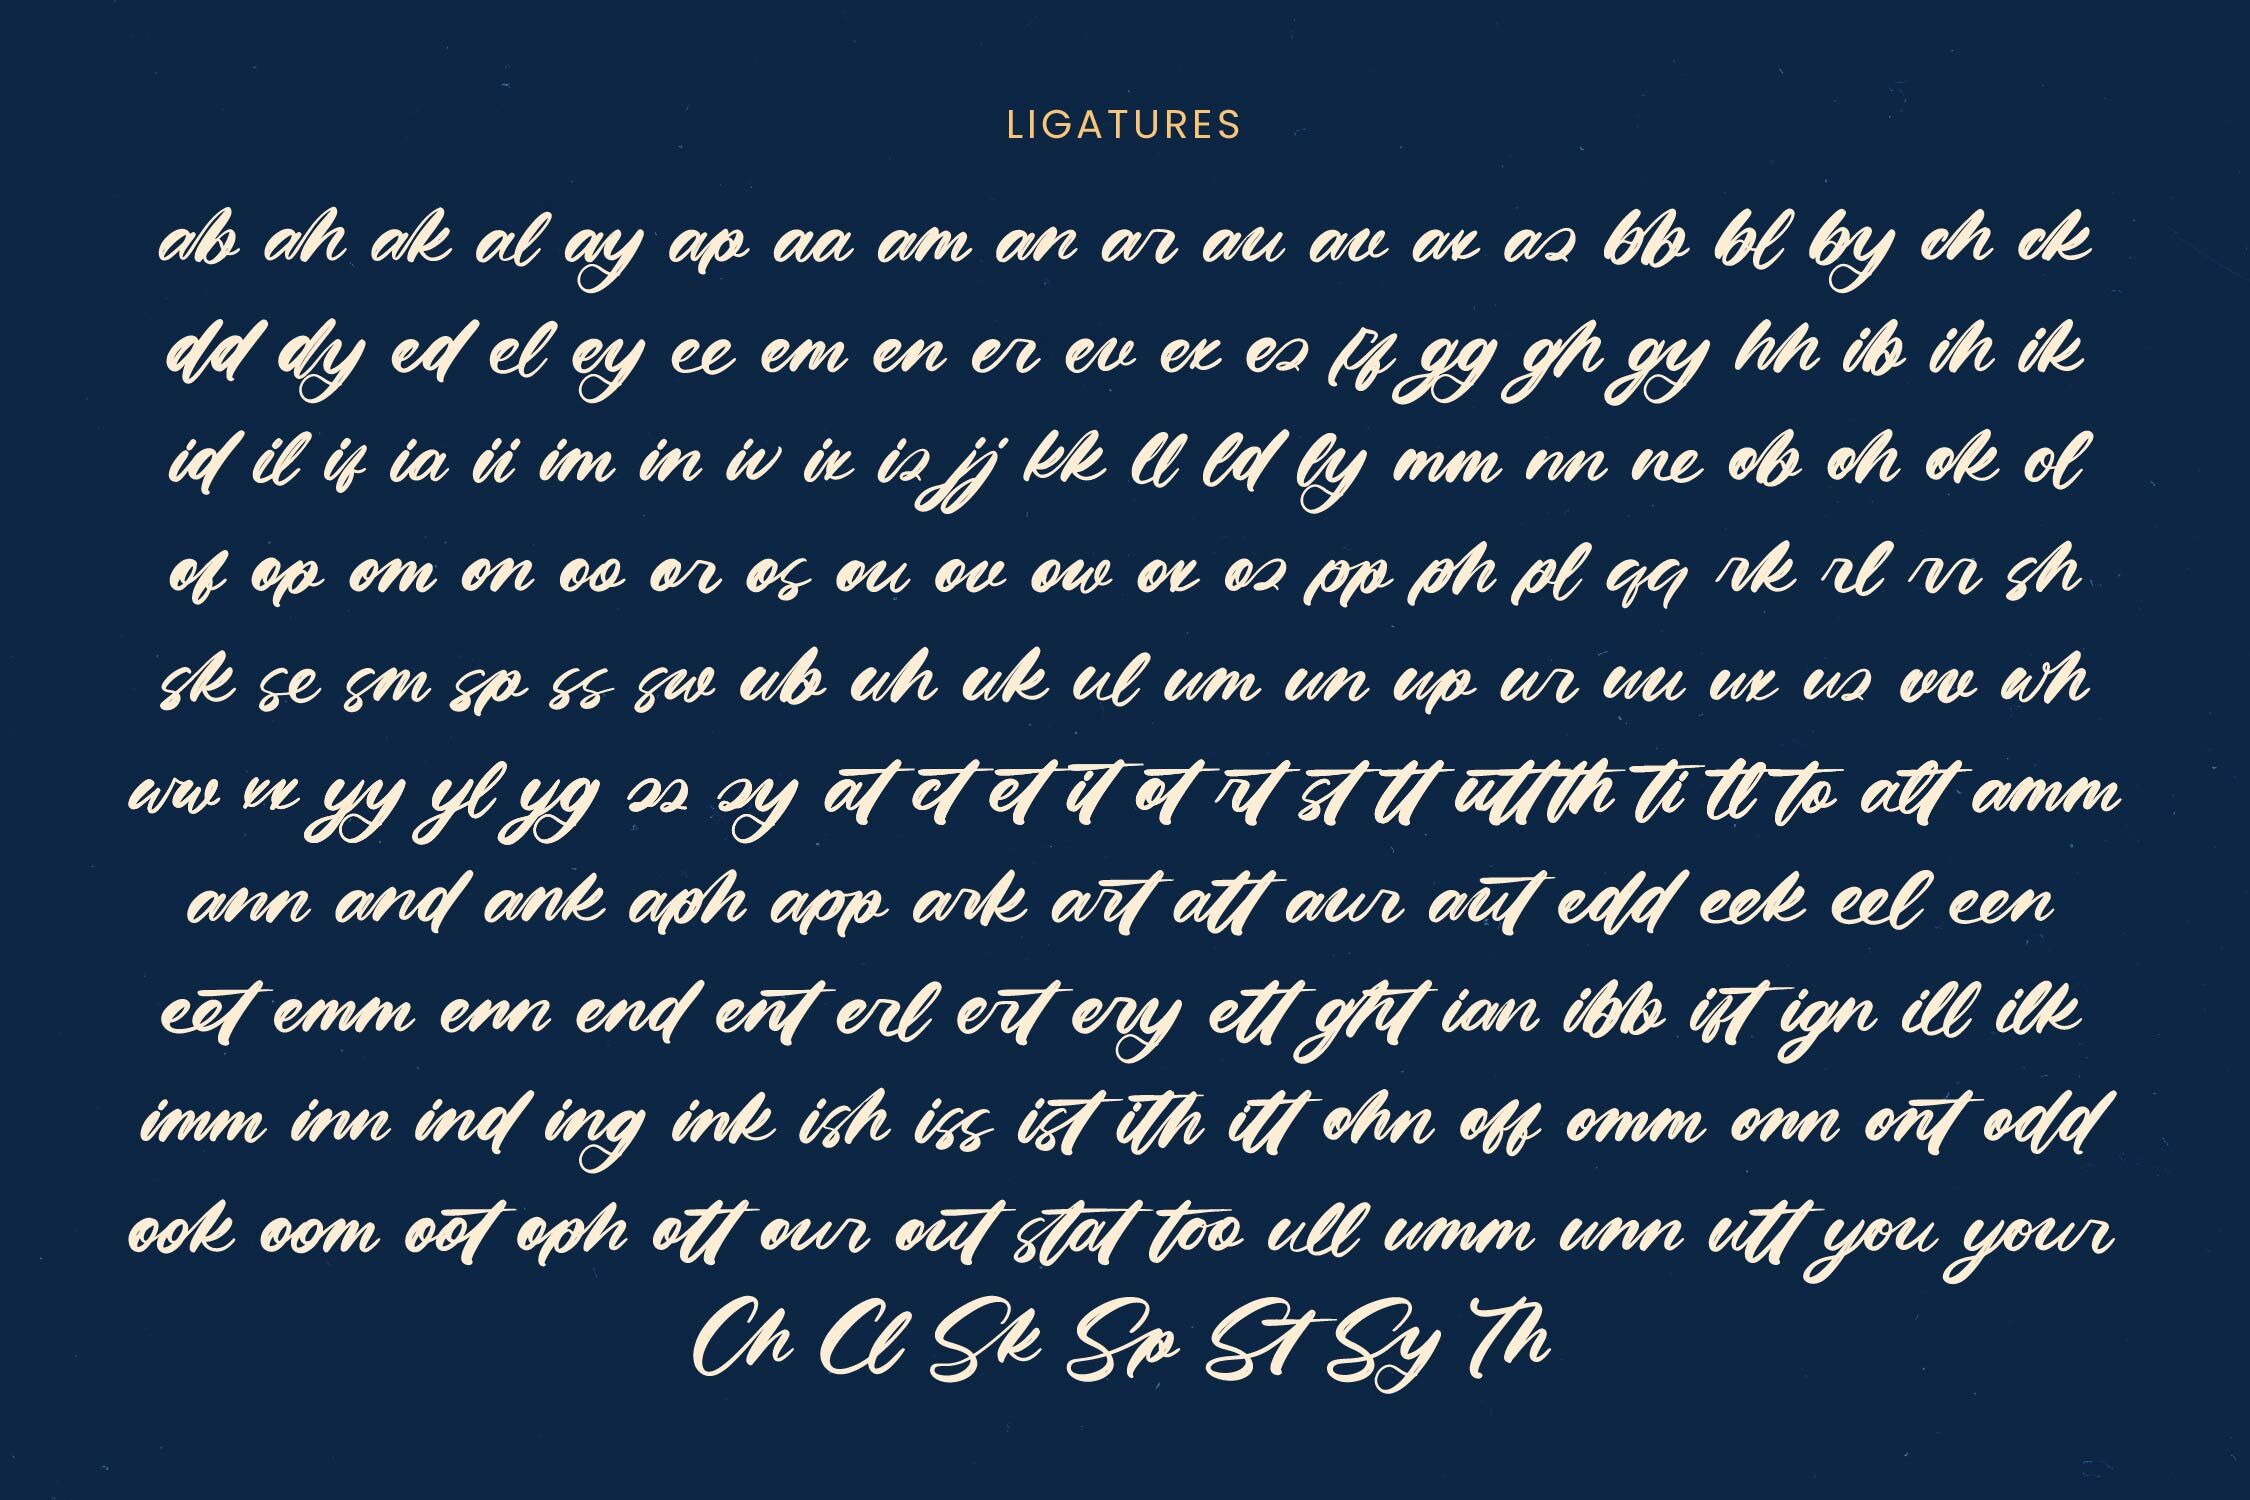 LIGATURES
ab ah ak al ay ap aa am an ar au av ax az bb bl by ch ck
dd dy ed el ey ee em en er ev ex ez ff gg gh gy hh ib ih ik
id il if ia ii im in iv ix iz jj kk ll ld ly mm nn ne ob oh ok ol
of op om on oo or os ou ov ow ox oz pp ph pl qq rk rl rr sh
sk se sm sp ss sw ub uh uk ul um un up ur uu ux uz vv wh
ww xx yy yl yg zz zy at ct et it ot rt st tt utt th ti tl to alt amm
ann and ank aph app ark art att aur aut edd eek eel een
eet emm enn end ent erl ert ery ett ght ian ibb ift ign ill ilk
imm inn ind ing ink ish iss ist ith itt ohn off omm onn ont odd
ook oom oot oph ott our out stat too ull umm unn utt you your
Ch Cl Sk Sp St Sy Th